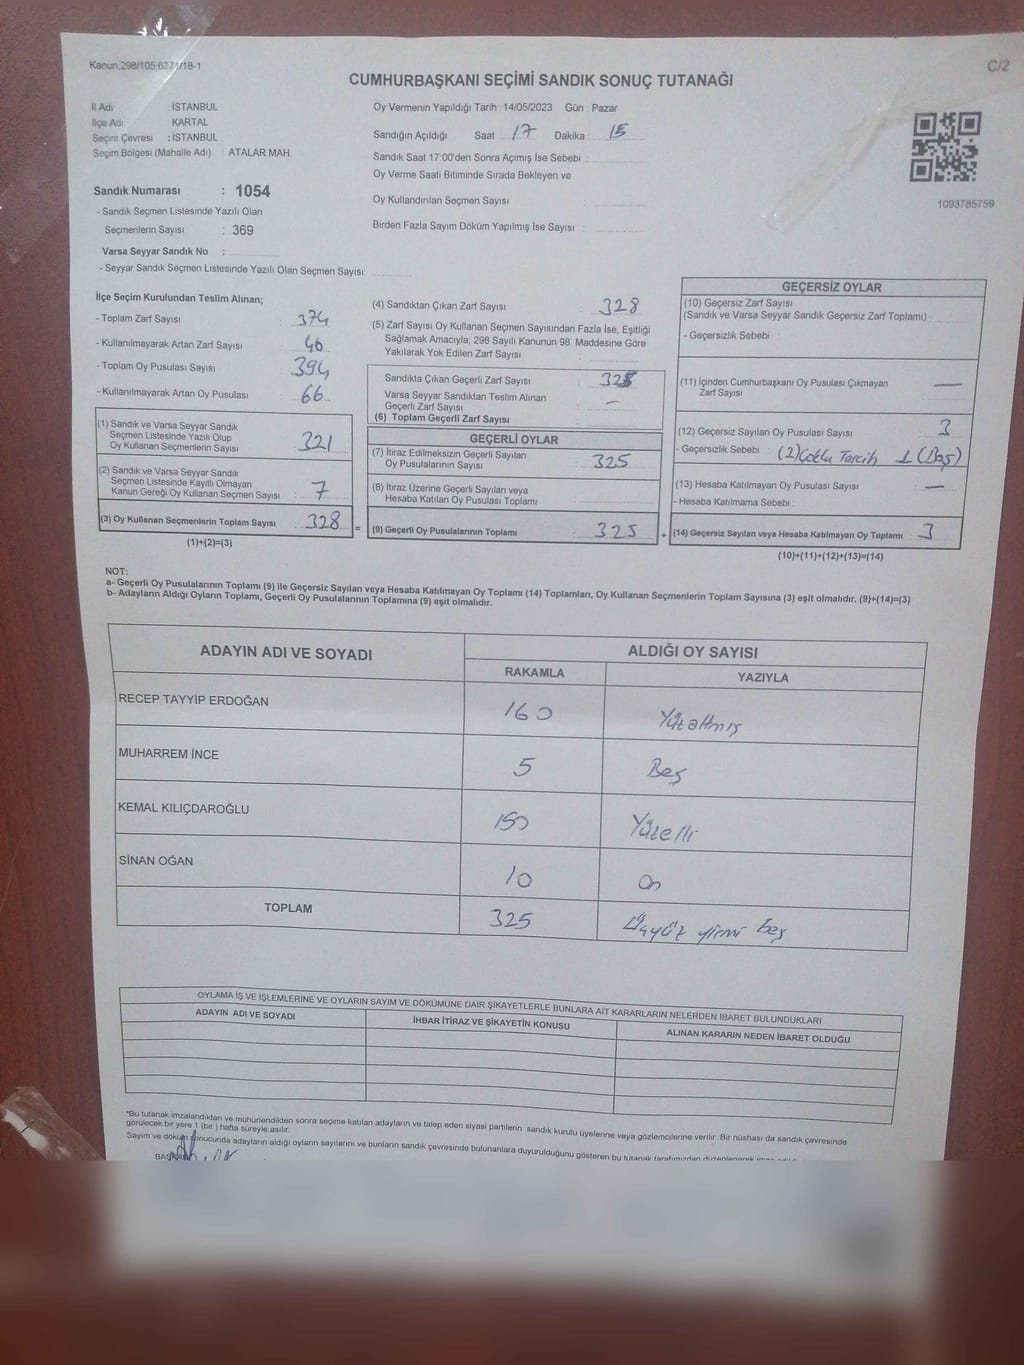 Kanun:298/105,6271/18-1
C/2
CUMHURBAŞKANI SEÇİMİ SANDIK SONUÇ TUTANAĞI
İl Adı : İSTANBUL
İlçe Adı : KARTAL
Seçim Çevresi : İSTANBUL
Seçim Bölgesi (Mahalle Adı) : ATALAR MAH
Sandık Numarası : 1054
- Sandık Seçmen Listesinde Yazılı Olan
Seçmenlerin Sayısı : 369
Varsa Seyyar Sandık No :
- Seyyar Sandık Seçmen Listesinde Yazılı Olan Seçmen Sayısı
Oy Vermenin Yapıldığı Tarih : 14/05/2023 Gün : Pazar
Sandığın Açıldığı Saat 17 Dakika 15
Sandık Saat 17:00'den Sonra Açımış İse Sebebi
Oy Verme Saati Bitiminde Sırada Bekleyen ve
Oy Kullandırılan Seçmen Sayısı :
Birden Fazla Sayım Döküm Yapılmış İse Sayısı :
1093785759
İlçe Seçim Kurulundan Teslim Alınan;
- Toplam Zarf Sayısı : 374
- Kullanılmayarak Artan Zarf Sayısı : 46
- Toplam Oy Pusulası Sayısı : 394
- Kullanılmayarak Artan Oy Pusulası : 66
(1) Sandık ve Varsa Seyyar Sandık
Seçmen Listesinde Yazılı Olup
Oy Kullanan Seçmenlerin Sayısı : 321
(2) Sandık ve Varsa Seyyar Sandık
Seçmen Listesinde Kayıtlı Olmayan
Kanun Gereği Oy Kullanan Seçmen Sayısı : 7
(3) Oy Kullanan Seçmenlerin Toplam Sayısı : 328
(1)+(2)=(3)
(4) Sandıktan Çıkan Zarf Sayısı : 328
(5) Zarf Sayısı Oy Kullanan Seçmen Sayısından Fazla İse, Eşitliği
Sağlamak Amacıyla, 298 Sayılı Kanunun 98. Maddesine Göre
Yakılarak Yok Edilen Zarf Sayısı :
Sandıkta Çıkan Geçerli Zarf Sayısı : 328
Varsa Seyyar Sandıktan Teslim Alınan
Geçerli Zarf Sayısı : -
(6) Toplam Geçerli Zarf Sayısı :
GEÇERLİ OYLAR
(7) İtiraz Edilmeksizin Geçerli Sayılan
Oy Pusulalarının Sayısı : 325
(8) İtiraz Üzerine Geçerli Sayılan veya
Hesaba Katılan Oy Pusulası Toplamı :
= (9) Geçerli Oy Pusulalarının Toplamı : 325 +
GEÇERSİZ OYLAR
(10) Geçersiz Zarf Sayısı
(Sandık ve Varsa Seyyar Sandık Geçersiz Zarf Toplamı) :
- Geçersizlik Sebebi :
(11) İçinden Cumhurbaşkanı Oy Pusulası Çıkmayan
Zarf Sayısı : —
(12) Geçersiz Sayılan Oy Pusulası Sayısı : 3
- Geçersizlik Sebebi : (2) Çoklu Tercih 1 (Boş)
(13) Hesaba Katılmayan Oy Pusulası Sayısı : —
- Hesaba Katılmama Sebebi :
(14) Geçersiz Sayılan veya Hesaba Katılmayan Oy Toplamı : 3
(10)+(11)+(12)+(13)=(14)
NOT:
a- Geçerli Oy Pusulalarının Toplamı (9) ile Geçersiz Sayılan veya Hesaba Katılmayan Oy Toplamı (14) Toplamları, Oy Kullanan Seçmenlerin Toplam Sayısına (3) eşit olmalıdır. (9)+(14)=(3)
b- Adayların Aldığı Oyların Toplamı, Geçerli Oy Pusulalarının Toplamına (9) eşit olmalıdır.
ADAYIN ADI VE SOYADI
ALDIĞI OY SAYISI
RAKAMLA YAZIYLA
RECEP TAYYİP ERDOĞAN 160 Yüzaltmış
MUHARREM İNCE 5 Beş
KEMAL KILIÇDAROĞLU 150 Yüzelli
SİNAN OĞAN 10 On
TOPLAM 325 Üçyüz yirmi beş
OYLAMA İŞ VE İŞLEMLERİNE VE OYLARIN SAYIM VE DÖKÜMÜNE DAİR ŞİKAYETLERLE BUNLARA AİT KARARLARIN NELERDEN İBARET BULUNDUKLARI
ADAYIN ADI VE SOYADI İHBAR İTİRAZ VE ŞİKAYETİN KONUSU ALINAN KARARIN NEDEN İBARET OLDUĞU
*Bu tutanak imzalandıktan ve mühürlendikten sonra seçime katılan adayların ve talep eden siyasi partilerin sandık kurulu üyelerine veya gözlemcilerine verilir. Bir nüshası da sandık çevresinde
görülecek bir yere 1 (bir) hafta süreyle asılır.
Sayım ve döküm sonucunda adayların aldığı oyların sayılarını ve bunların sandık çevresinde bulunanlara duyurulduğunu gösteren bu tutanak tarafımızdan düzenlenerek